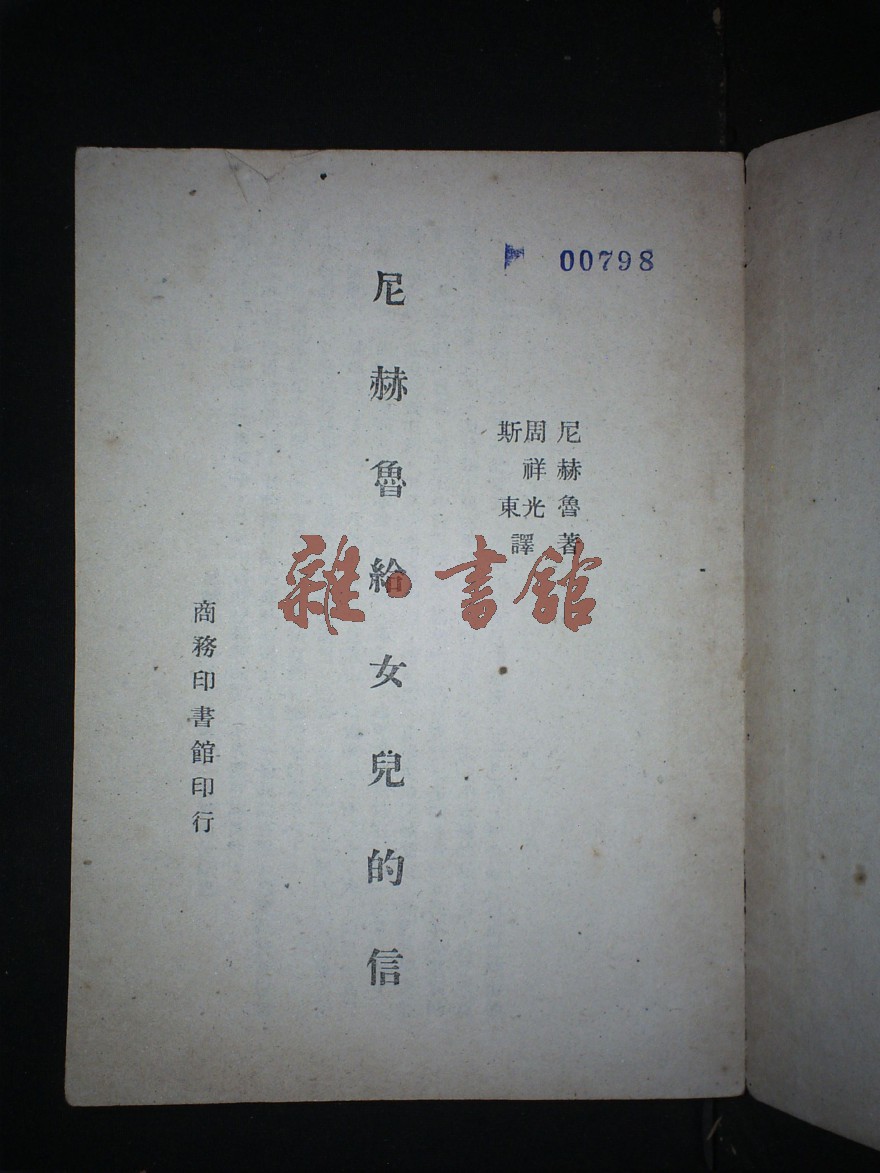 00798
尼赫魯著
周祥光
斯東
譯
尼赫魯給女兒的信
商務印書館印行
雜·書館